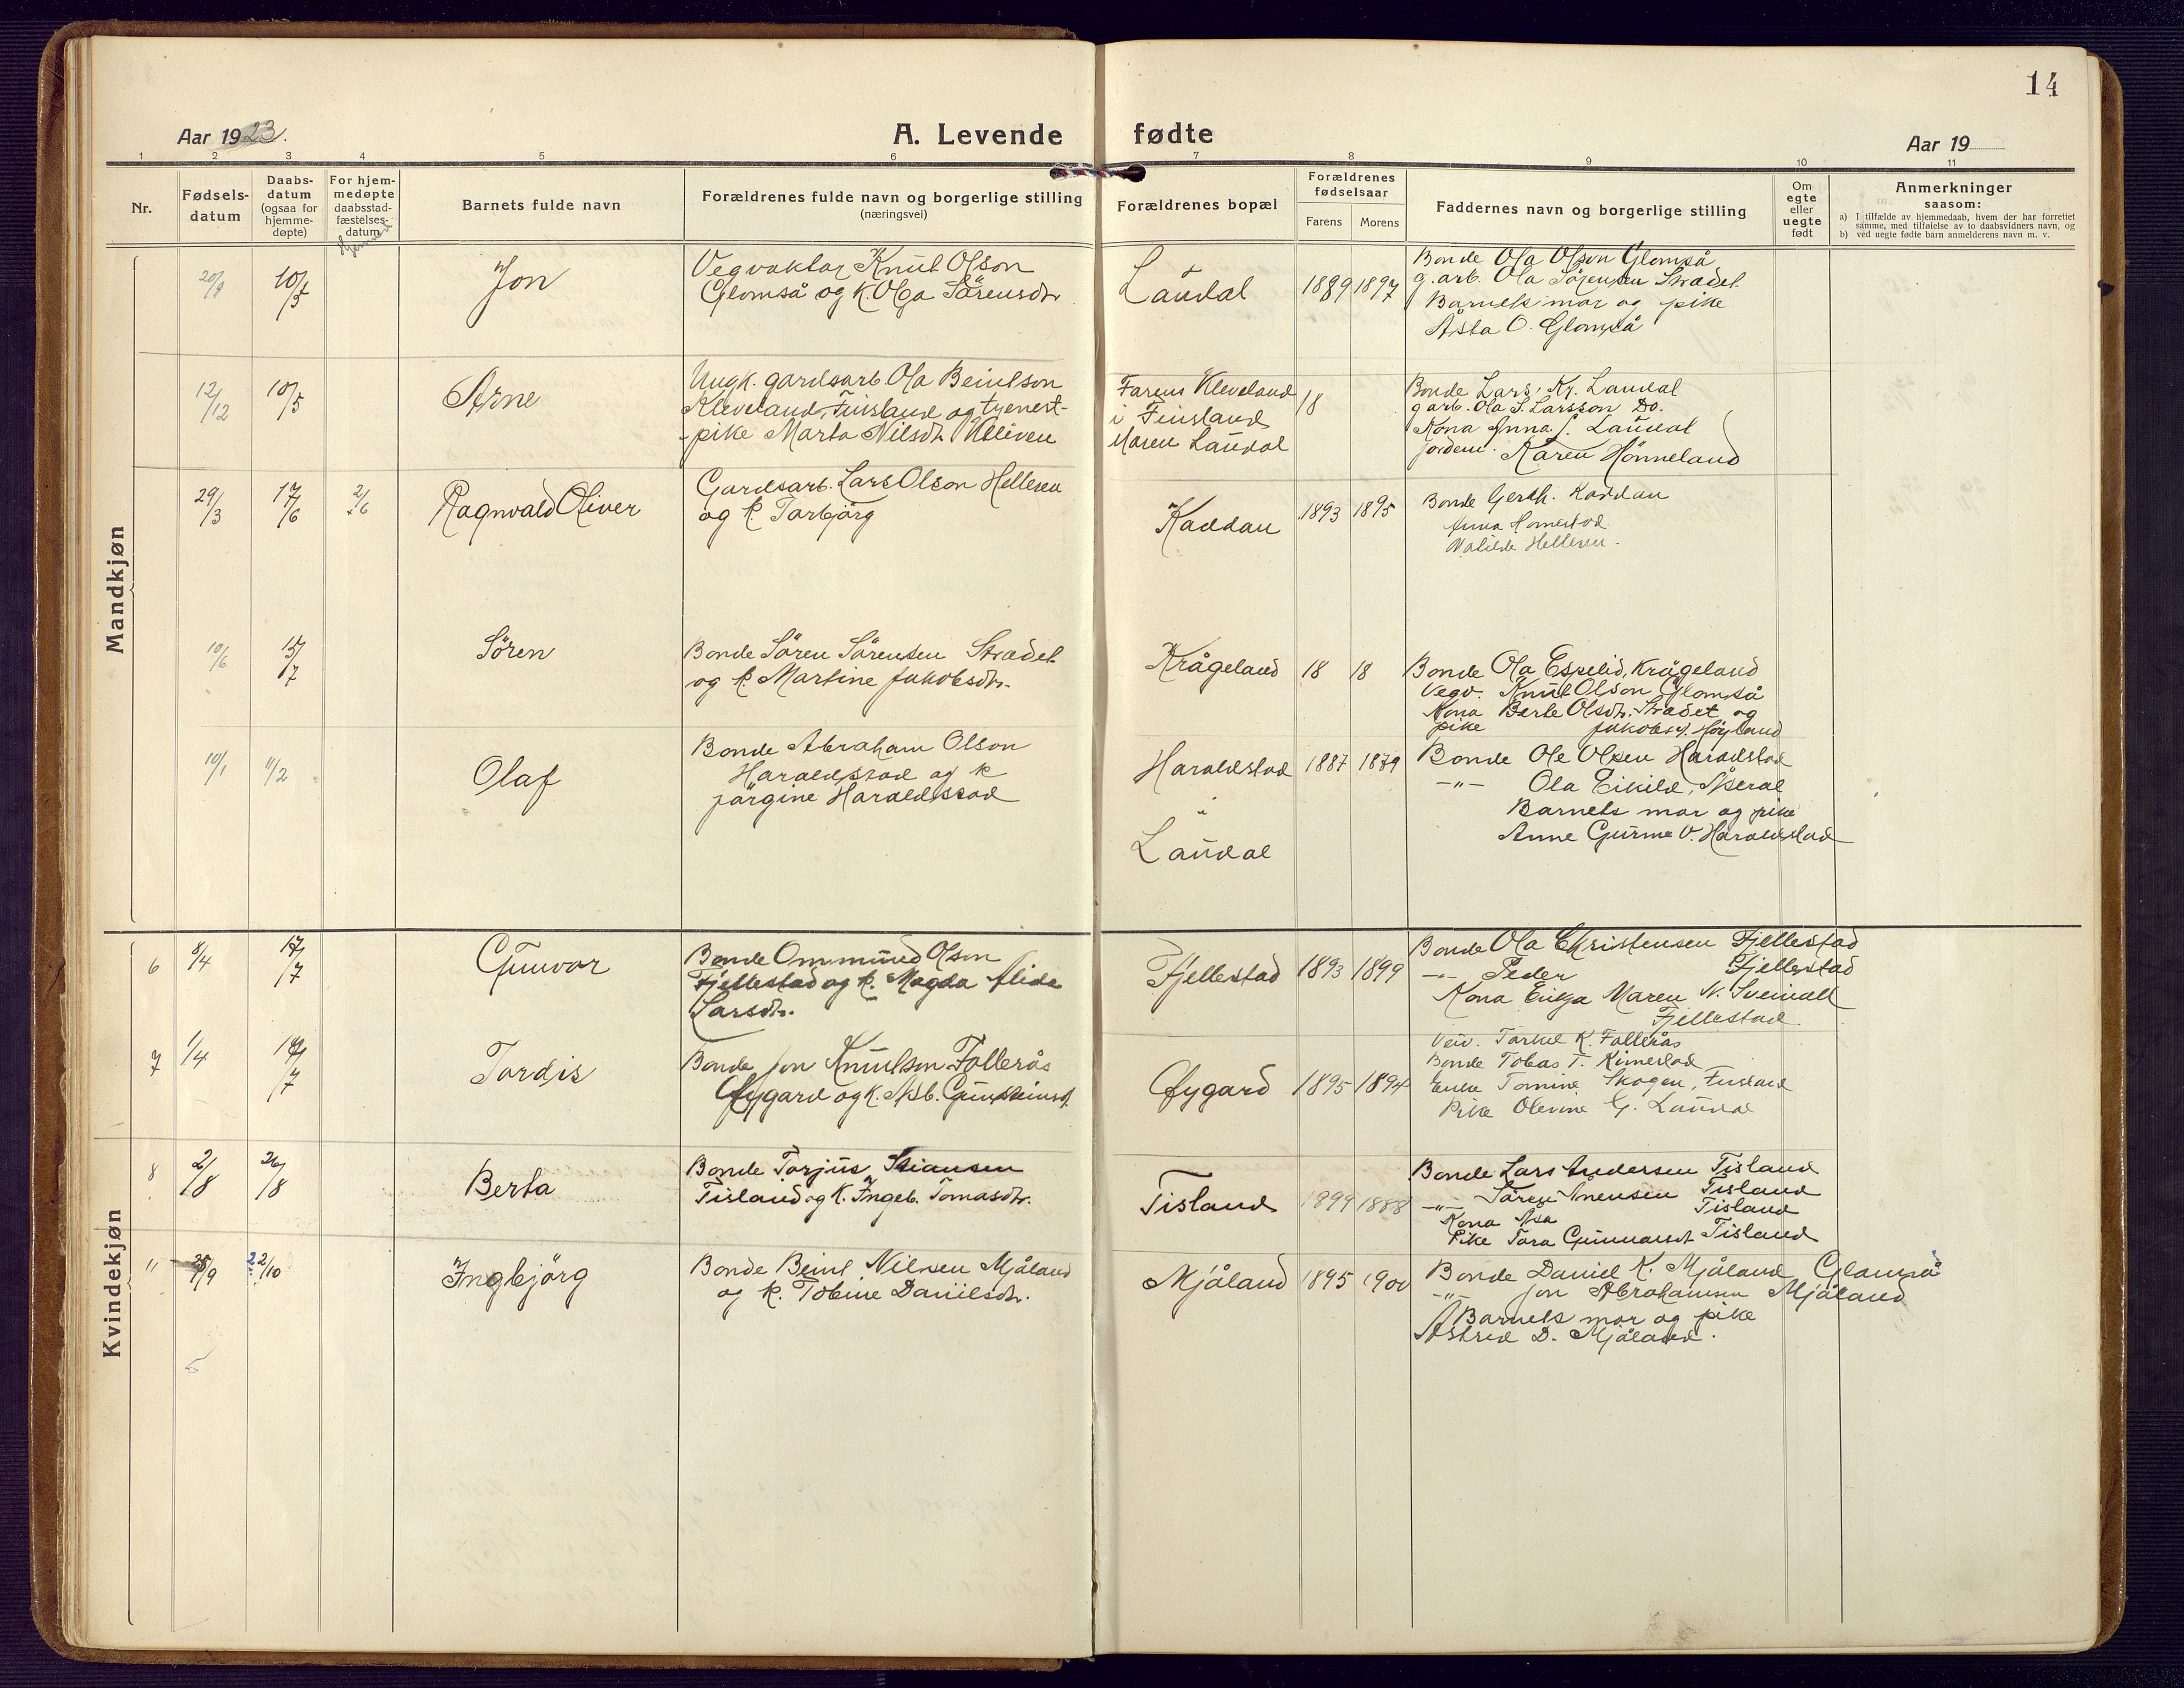 14
Aar 1923.
A. Levende fødte
Aar 19
1 2 3 4 5 6 7 8 9 10 11
Nr.
Fødsels-
datum
Daabs-
datum
(ogsaa for
hjemme-
døpte)
For hjem-
medøpte
daabsstad-
fæstelses-
datum
Barnets fulde navn
Forældrenes fulde navn og borgerlige stilling
(næringsvei)
Forældrenes bopæl
Forældrenes
fødselsaar
Farens Morens
Faddernes navn og borgerlige stilling
Om
egte
eller
uegte
født
Anmerkninger
saasom:
a) I tilfælde av hjemmedaab, hvem der har forrettet
samme, med tilføielse av to daabsvidners navn, og
b) ved uegte fødte barn anmelderens navn m. v.
Mandkjøn
10/5
Jon
Vegvaktar Knut Olson
Glomså og k. Olga Sörensdtr.
Laudal
1889 1897
Bonde Ola Olson Glomså
g. arb. Ola Sörensen Stradet
Barnets mor og pike
Åsta O. Glomså
12/12
10/5
Arne
Ungk. gardsarb. Ola Beintson
Kleveland, Finsland og tjenest-
-pike Marta Nilsdtr.
Farens Kleveland
i Finsland
Moren Laudal
18
Bonde Lars Kr. Laudal
g arb. Ola S. Larsson Do.
Kona Anna S. Laudal
Jordem. Karen Hönneland
29/3
17/6
2/6
Ragnvald Oliver
Gardsarb. Lars Olson Helleren
og k. Torbjörg
Kaddan
1893 1895
Bonde Gerh. Kaddan
Anna Homestad
Helleren.
10/6
15/7
Sören
Bonde Sören Sörensen Stradet
og k. Martine Jakobsdtr.
Krågeland
18 18
Bonde Ola Espelid, Krågeland
Vegv. Knut Olson Glomså
Kona Berte Olsdtr. Stradet og
pike Jakobsd. Höyland
10/1
11/2
Olaf
Bonde Abraham Olson
Haraldstad og k
Jörgine Haraldstad
Haraldstad
i
Laudal
1887 1879
Bonde Ole Olsen Haraldstad
-"- Ola Eikild, Åseral
Barnets mor og pike
Anne Gurine O. Haraldstad
Kvindekjøn
6
8/4
17/7
Gunvor
Bonde Ommund Olson
Fjellestad og k. Magda Alida
Larsdtr.
Fjellestad
1893 1899
Bonde Ola Christensen Fjellestad
-"- Peder Fjellestad
Kona Maren N. Sveindal
Fjellestad
7
1/4
Tordis
Bonde Jon Knutson Follerås
Öygard og k. Åsb. Gunsteinsd.
Öygard
1895 1894
Veiv. Torkel K. Follerås
Bonde Tobias T. Kimestad
Enke Tomine Skogen, Finsland
Pike Olevine G. Laudal
8
2/8
26/8
Berta
Bonde Torjus Stiansen
Tisland og k. Ingeb. Tomasdtr.
Tisland
1899 1888
Bonde Lars Andersen Tisland
-"- Sören Tisland
Kona Åsa Tisland
Pike Tora Gunnarsdt Tisland
"
22/10
Ingbjörg
Bonde Beint Nilsen Mjåland
og k. Tobine Danielsdtr.
Mjåland
1895 1900
Bonde Daniel K. Mjåland, Glomså
-"- Jon Abrahamsen Mjåland
Barnets mor og pike
Astrid D. Mjåland.